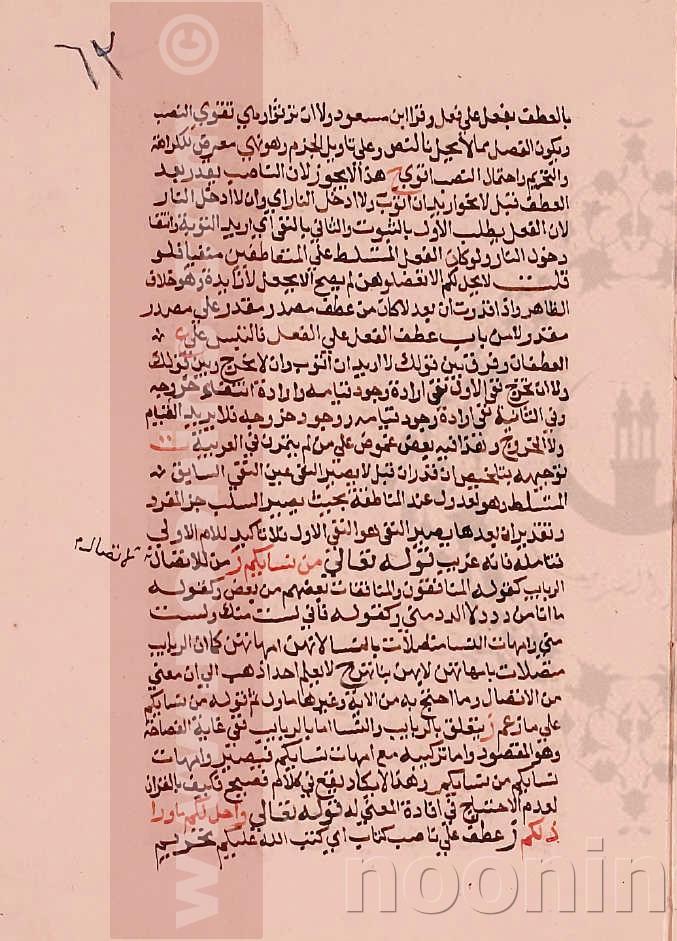 ٦٢
بالعطف بفعل على فعل وقرا ابن مسعود ولا ان ترثوا وهي تقوي النصب
ويكون الفصل مما لا يحل بالنص وعلى تاويل الجزم وهو نهي معرض للكراهة
والتحريم واحتمال النصب اقوى ح هذا لا يجوز لان الناصب يقدر بعد
العطف قبل لا نحو اريد ان اتوب ولا ادخل النار اي وان لا ادخل النار
لان الفعل يطلب الاول بالثبوت والثاني بالنفي اي اريد التوبة وانتفا
دخول النار ولو كان الفعل المتسلط على المتعاطفين منفيا فلو
قلت لا يحل لكم الا تعضلوهن لم يصح الا يجعل لا زايدة وهو خلاف
الظاهر واذا قدرت ان بعد لا كان من عطف مصدر مقدر على مصدر
مقدر لا من باب عطف الفعل على الفعل فالتبس على ع
العطفان وفرق بين قولك لا اريد ان اتوب وان لا يخرج وبين قولك
ولا ان تخرج نفي الاول نفي ارادة وجود قيامه وارادة انتفاء خروجه
وفي الثانية نفي ارادة وجود قيامه ووجود خروجه فلا يريد القيام
ولا الخروج وهذا فيه بعض غموض على من لم يتمرن في العربية
توجيهه بتلخيص ان قدر ان قبل لا يصير النفي عين النفي السابق
المتسلط وهو لعدول عند المناطقة بحيث يصير السلب جز المفرد
وتقدير ان بعدها يصير النفي هو النفي الاول فلا تاكيد للام الاولى
فتامله فانه غريب قوله تعالى من نسايكم ز من للاتصال
الربايب كقوله المنافقون والمنافقات بعضهم من بعض وكقوله
ما انا من دد ولا الدد مني وكقوله فاني لست منك ولست
مني وامهات النسا متصلات بالنسا لانهن امهاتهن كما ان الربايب
متصلات بامهاتهن لانهن بناتهن ح لا نعلم احدا ذهب الى ان معنى
من الاتصال وما احتج به من الاية وغيرها ماول قوله من نسايكم
على ما زعم ز يتعلق بالربايب والنسا اما بالربايب ففي غاية الفصاحة
وهو المقصود واما تركيبه مع امهات نسايكم فيصير وامهات
نسايكم من نسايكم وهذا لا يكاد يقع في كلام فصيح فكيف بالقران
لعدم الاحتياج في افادة المعنى له قوله تعالى واحل لكم ما ورا
ذلكم ز عطف على ناصب كتاب اي كتب الله عليكم تحريم
www.
©
noonin